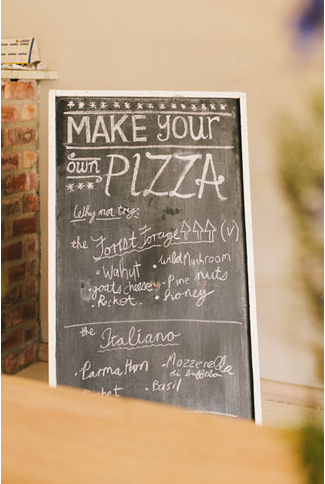 MAKE your
own PIZZA
Why not try:
the Forist Forage (V)
• Walnut • wild Mushroom
• goats cheese • Pine nuts
• Rocket • honey
the Italiano
• Parma Ham • Mozzerella
di buffela
• Basil